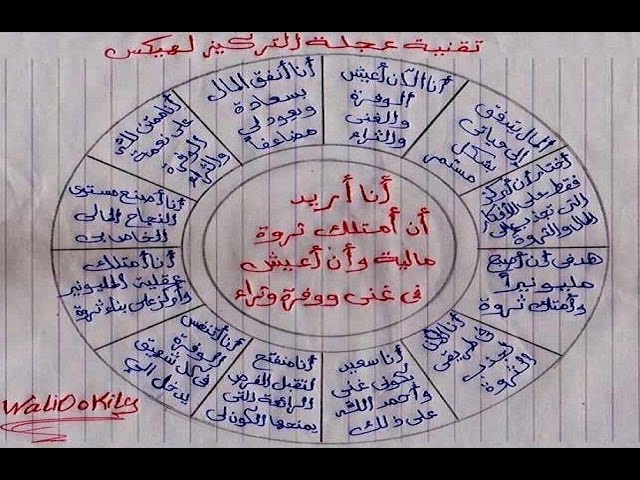 تقنية عجلة التركيز لهيكس
أنا أريد
أن أمتلك ثروة
مالية وأن أعيش
في غنى ووفرة وثراء
أنا الآن أعيش
الوفرة
والغنى
والثراء
المال يتدفق
إلى حياتي
بشكل
مستمر
أختار أن أركز
فقط على الأفكار
التي تجذب لي
المال والثروة
هدفي أن أصبح
مليونيراً
وأمتلك ثروة
أنا الآن
في طريقي
لجذب
الثروة
أنا سعيد
بكوني غني
وأحمد الله
على ذلك
أنا منفتح
لتقبل الفرص
الرائعة التي
يمنحها الكون لي
أنا أتنفس
الوفرة
في كل شهيق
يدخل إلي
أنا أمتلك
عقلية المليونير
وأركز على بناء ثروة
أنا أصنع مستوى
النجاح المالي
الخاص بي
أنا ممتن لله
على نعمة
الوفرة
والثراء
أنا أنفق المال
بسعادة
ويعود لي
مضاعفا
WaliDoKiley